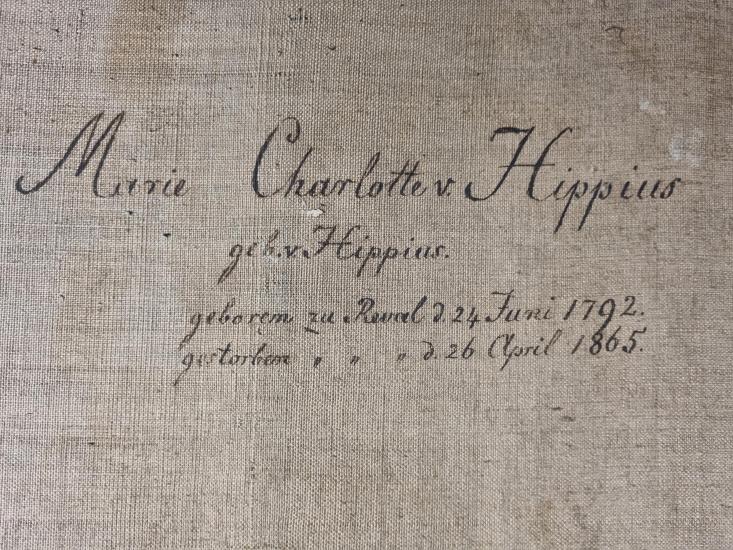 Marie Charlotte v. Hippius
geb. v. Hippius.
geboren zu Reval d. 24 Juni 1792.
gestorben " " " d. 26 April 1865.